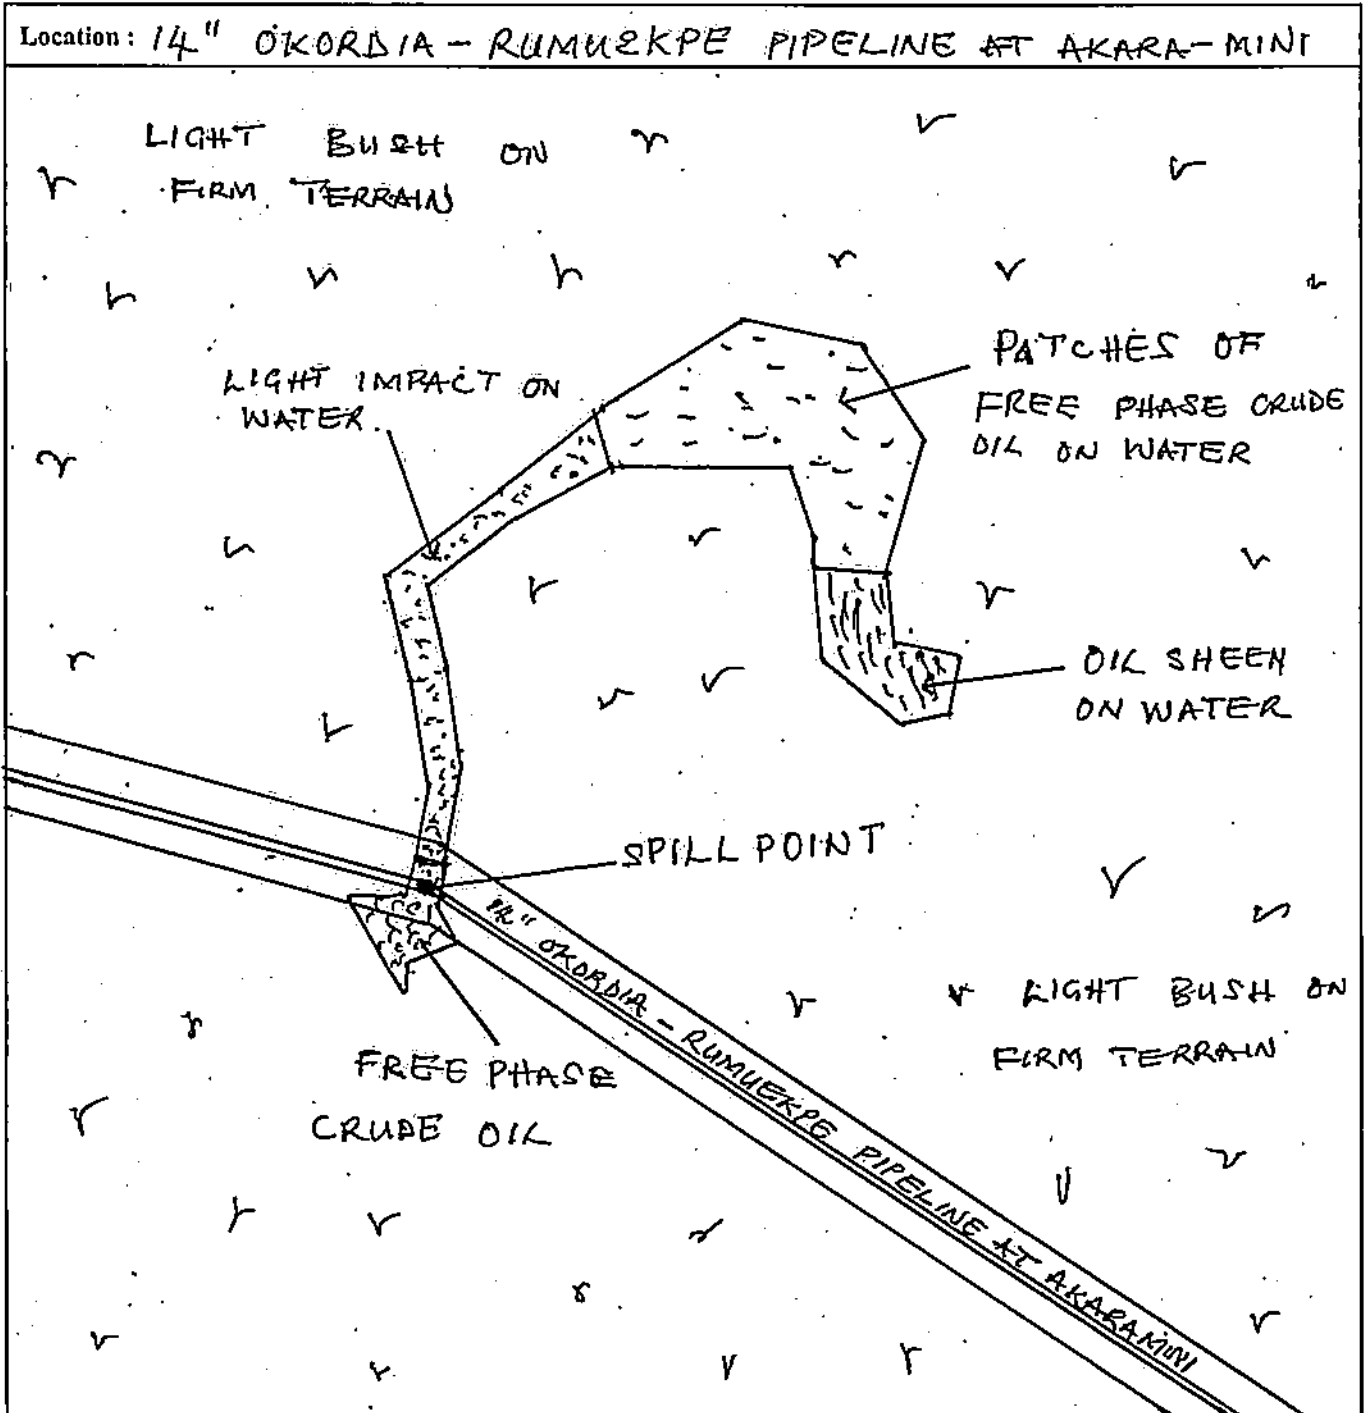 Location: 14" OKORDIA - RUMUEKPE PIPELINE AT AKARA-MINI
LIGHT BUSH ON
FIRM TERRAIN
PATCHES OF
FREE PHASE CRUDE
OIL ON WATER
LIGHT IMPACT ON
WATER
OIL SHEEN
ON WATER
SPILL POINT
14" OKORDIA - RUMUEKPE PIPELINE AT AKARAMINI
LIGHT BUSH ON
FIRM TERRAIN
FREE PHASE
CRUDE OIL